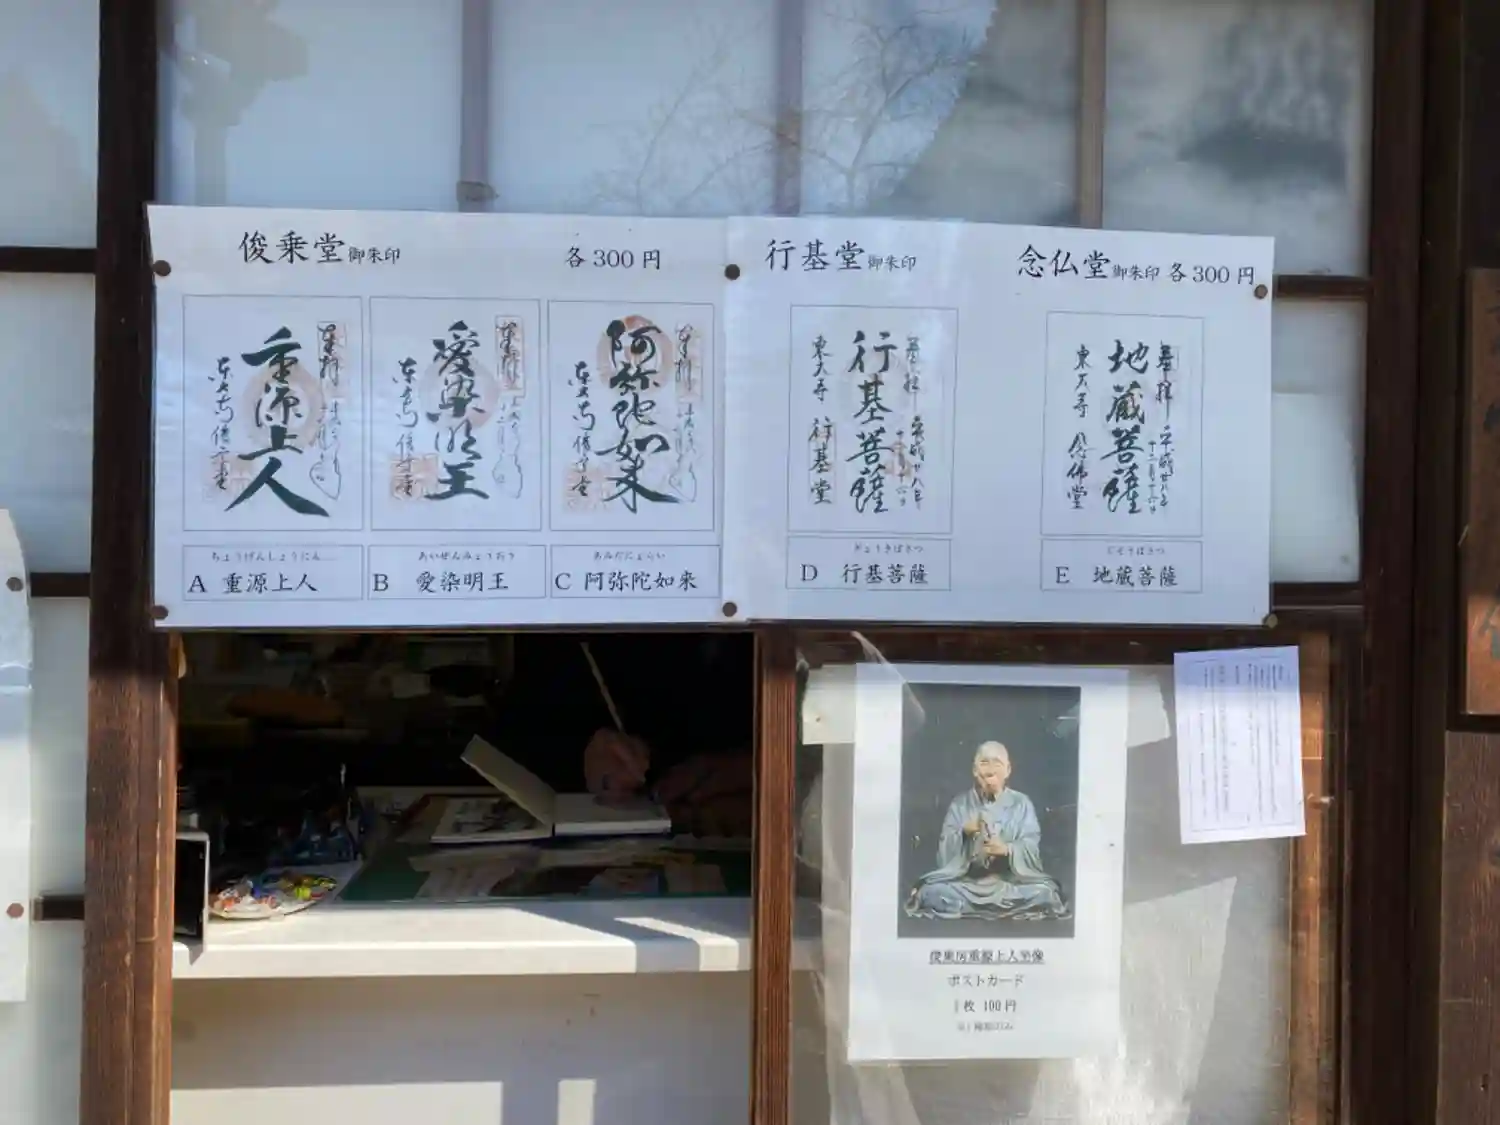 俊乗堂御朱印 各300円
行基堂御朱印
念仏堂御朱印 各300円
奉拝
重源上人
東大寺
奉拝
愛染明王
東大寺
奉拝
阿弥陀如来
東大寺
奉拝 平成廿八年
行基菩薩
東大寺 行基堂
奉拝 平成廿八年
十二月十六日
地蔵菩薩
東大寺 念佛堂
ちょうげんしょうにん
A 重源上人
あいぜんみょうおう
B 愛染明王
あみだにょらい
C 阿弥陀如来
ぎょうきぼさつ
D 行基菩薩
じぞうぼさつ
E 地蔵菩薩
俊乗房重源上人坐像
ポストカード
1枚 100円